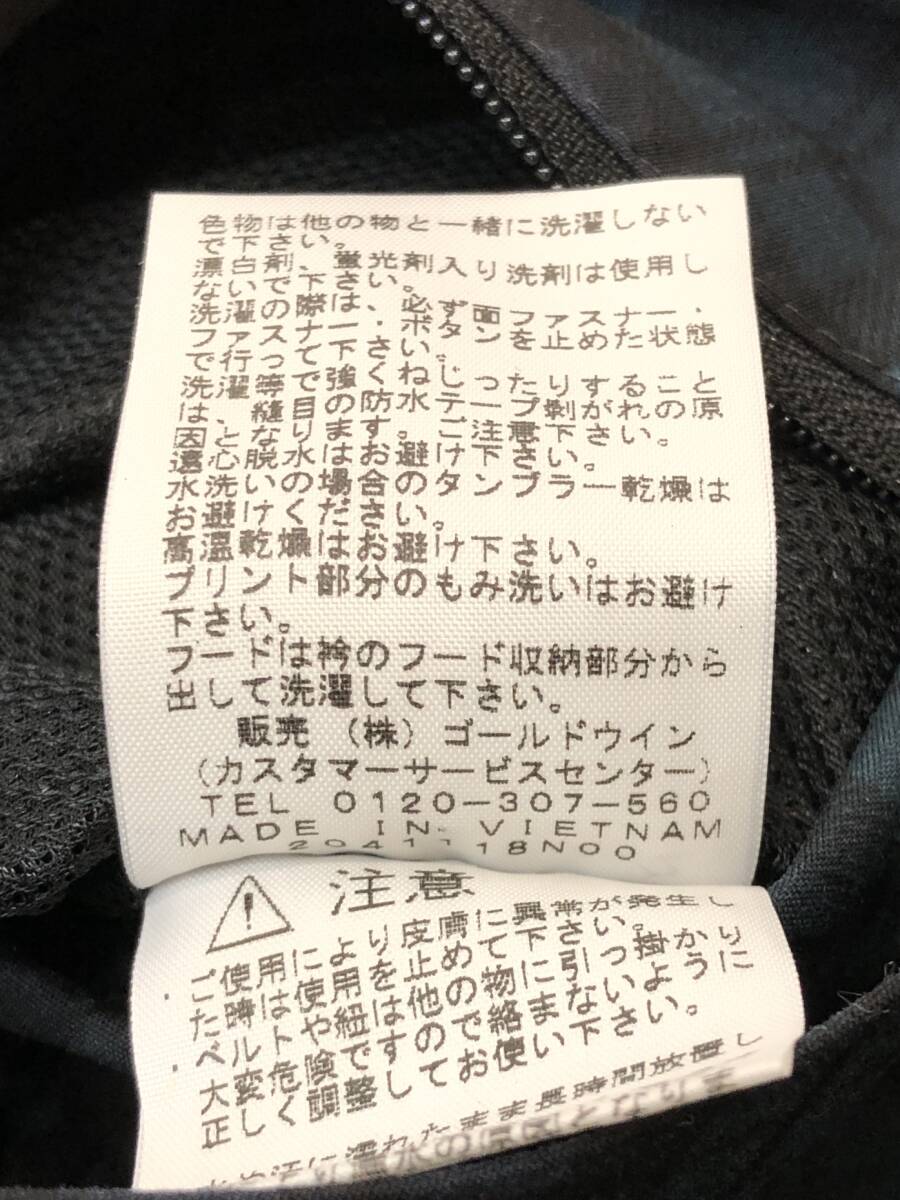 色物は他の物と一緒に洗濯しない
で下さい。
漂白剤、蛍光剤入り洗剤は使用し
ないで下さい。
洗濯の際は、必ず面ファスナー・
ファスナー・ボタンを止めた状態
で行って下さい。
洗濯等で強くねじったりすること
は、縫目の防水テープ剥がれの原
因となります。ご注意下さい。
遠心脱水はお避け下さい。
水洗いの場合のタンブラー乾燥は
お避けください。
高温乾燥はお避け下さい。
プリント部分のもみ洗いはお避け
下さい。
フードは衿のフード収納部分から
出して洗濯して下さい。
販売 (株) ゴールドウイン
(カスタマーサービスセンター)
TEL 0120-307-560
MADE IN VIETNAM
2041118N00
注意
ご使用により皮膚に異常が発生し
た時は使用を止めて下さい。
ベルトや紐は他の物に引っ掛かり
大変危険ですので絡まないように
正しく調整してお使い下さい。
汗に濡れたまま長時間放置し
水の原因となりま